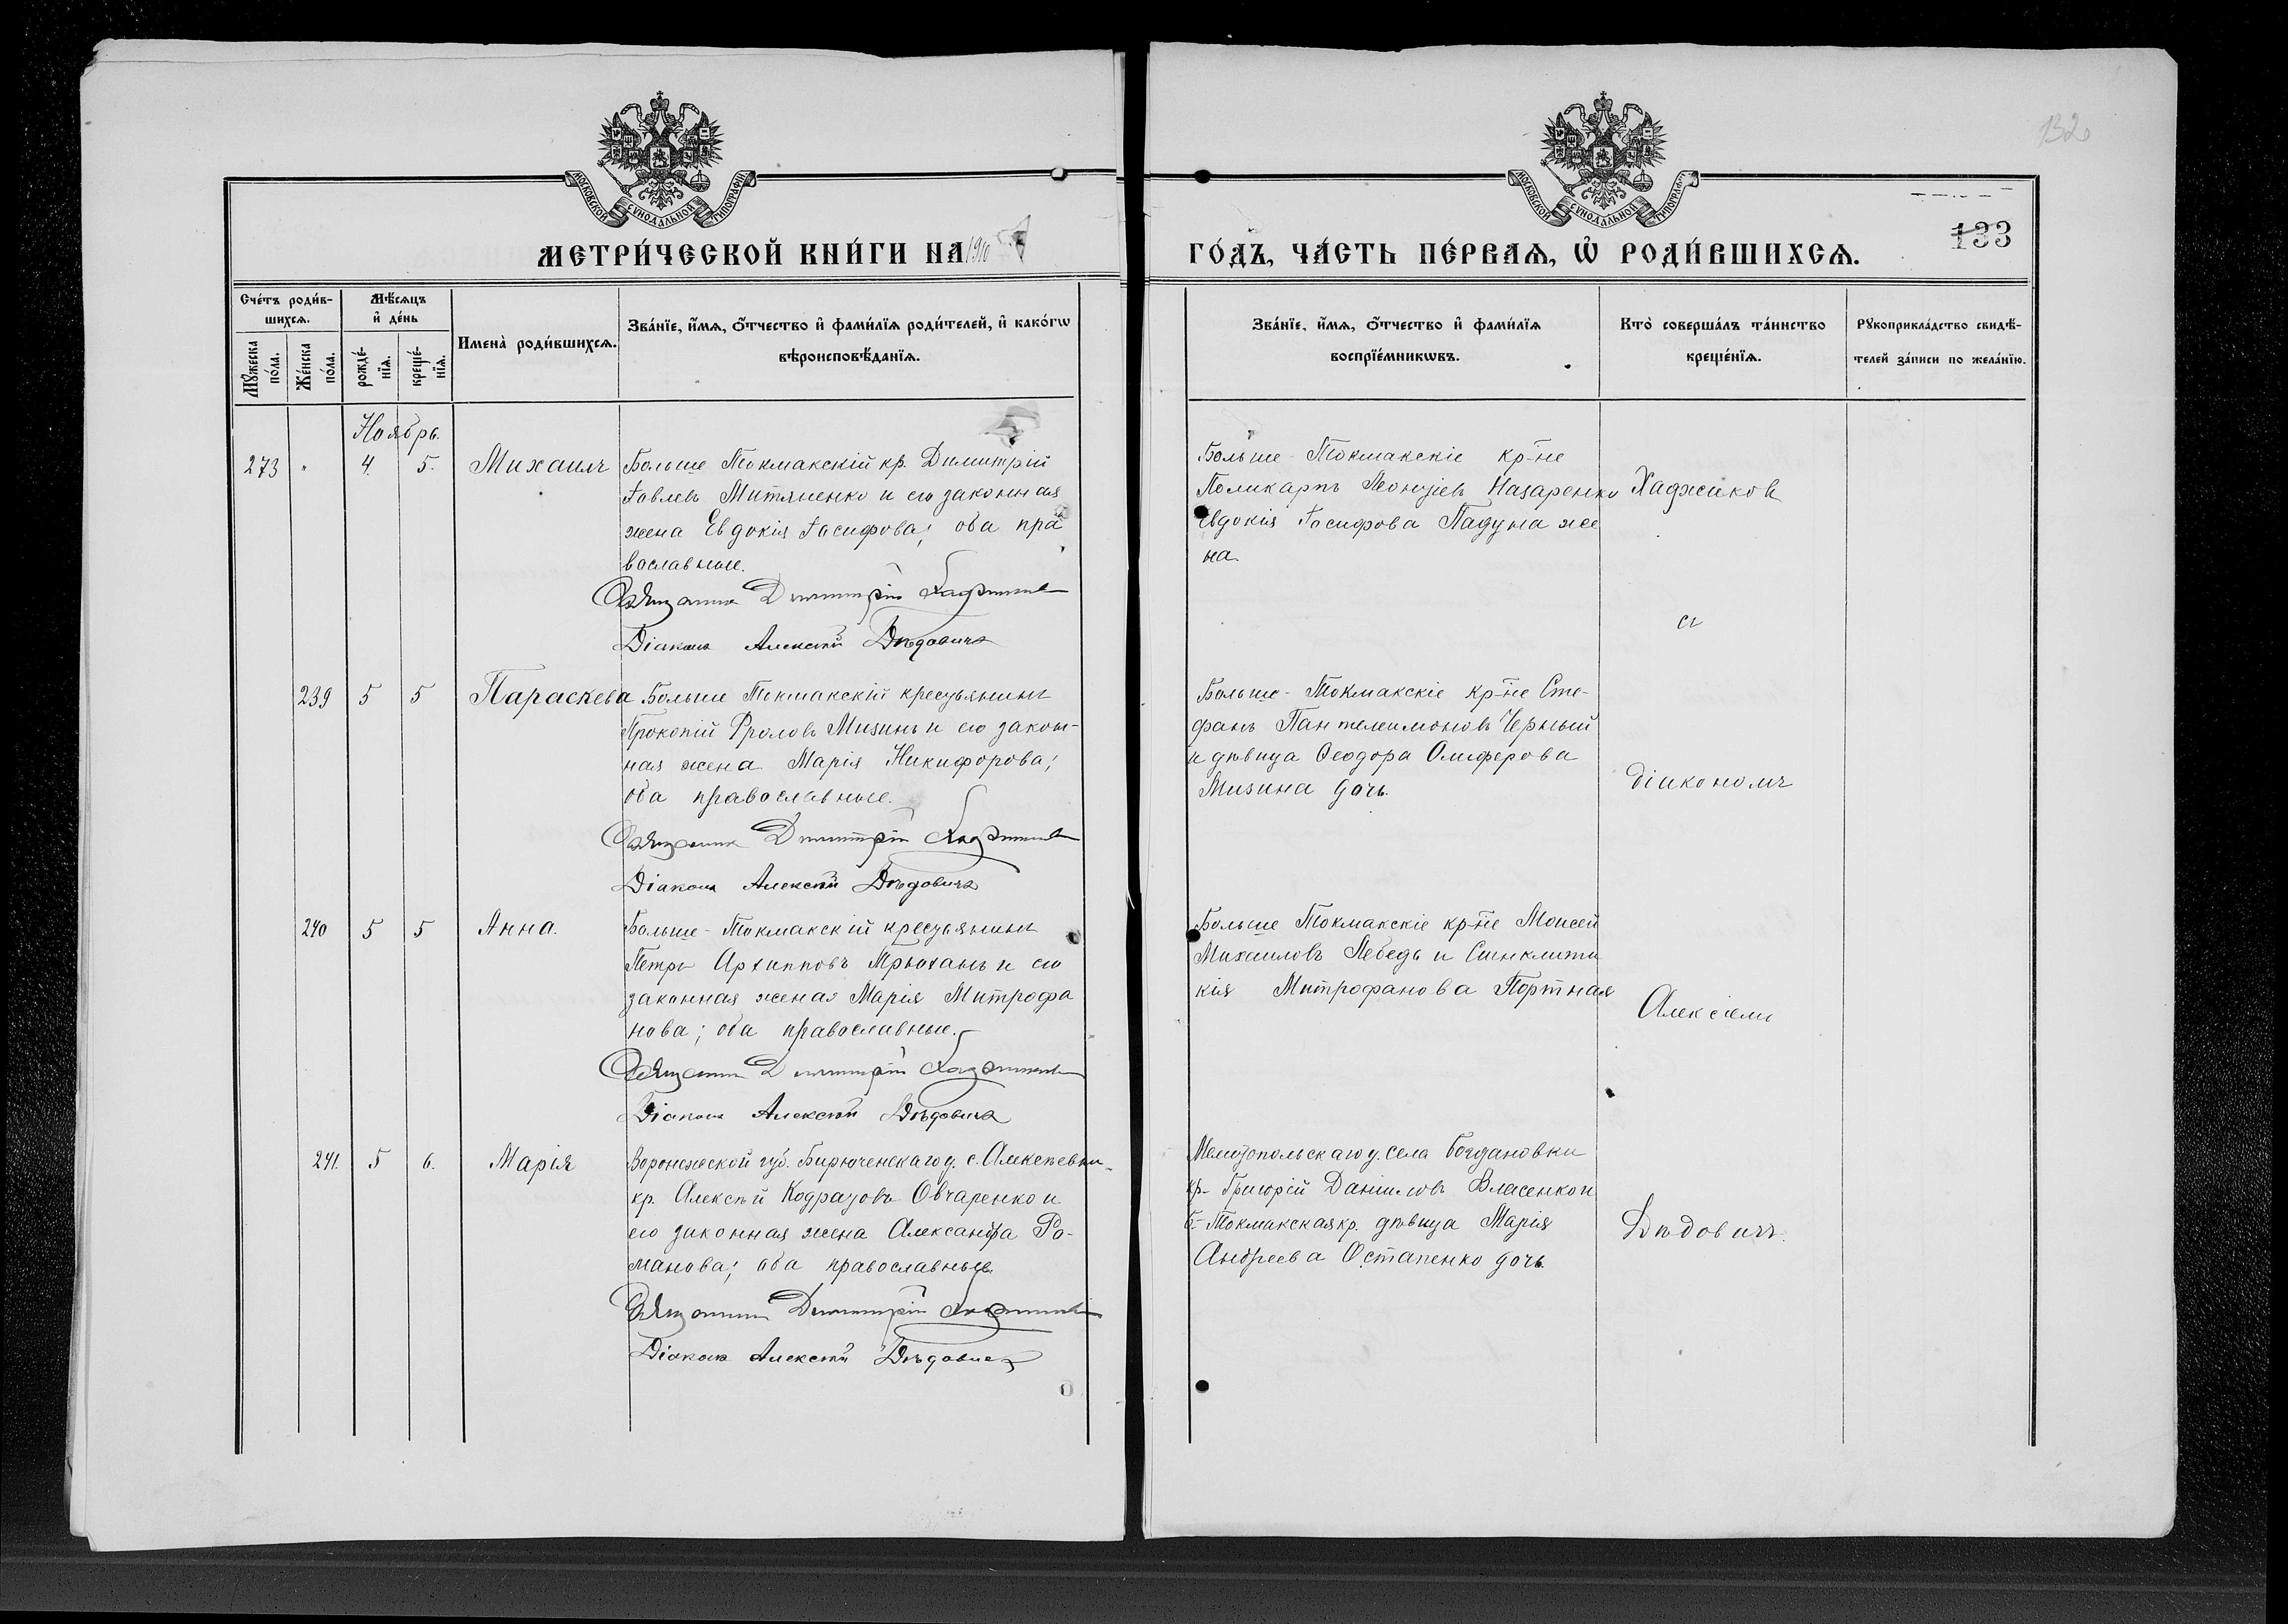 132
МОСКОВСКОЙ СѴНОДАЛЬНОЙ ТИПОГРАФІИ
МОСКОВСКОЙ СѴНОДАЛЬНОЙ ТИПОГРАФІИ
133
МЕТРИ́ЧЕСКОЙ КНИ́ГИ НА 1910
ГО́ДЪ, ЧА́СТЬ ПЕ́РВАѦ, Ѡ РОДИ́ВШИХСѦ.
Сче́тъ роди́в-
шихсѧ.
Мꙋ́жеска по́ла.
Же́нска по́ла.
Мѣ́сѧцъ
и҆ де́нь
рожде́-
нїѧ.
креще́-
нїѧ.
Имена̀ роди́вшихсѧ.
Зва́нїе, и҆́мѧ, ѻ҆́тчество и҆ фами́лїѧ роди́телей, и҆ како́гѡ
вѣроисповѣ́данїѧ.
Зва́нїе, и҆́мѧ, ѻ҆́тчество и҆ фами́лїѧ
воспрїе́мникѡвъ.
Кто̀ соверша́лъ та́инство
креще́нїѧ.
Рꙋкоприкла́дство свидѣ́-
телей за́писи по жела́нїю.
Ноябрь.
273 " 4. 5. Михаилъ
Больше Токмакскій кр. Димитрій
Іовлевъ Митяненко и его законная
жена Евдокія Іосифова; оба пра
вославные.
Священникъ Димитрій Хаджиковъ
Діаконъ Алексѣй Дѣдовичъ
Больше-Токмакскіе кр-не
Поликарпъ Леонтіевъ Назаренко
Евдокія Іосифова Падуна же
на.
Хаджиковъ
съ
239 5 5 Параскева
Больше Токмакскій кресуьянинъ
Прокопій Фроловъ Мизинъ и его закон-
ная жена Марія Никифорова;
оба православные.
Священникъ Димитрій Хаджиковъ
Діаконъ Алексѣй Дѣдовичъ
Больше-Токмакскіе кр-не Сте-
фанъ Пантелеимоновъ Черный
и дѣвица Ѳеодора Олиферова
Мизина дочь.
діакономъ
240 5 5 Анна.
Больше-Токмакскій кресуьянинъ
Петръ Архипповъ Трюханъ и его
законная жена Марія Митрофа
нова; оба православные.
Священникъ Димитрій Хаджиковъ
Діаконъ Алексѣй Дѣдовичъ
Больше Токмакскіе кр-не Моисей
Михаиловъ Лебедь и Синклити
кія Митрофанова Портная
Алексіемъ
241. 5 6. Марія
Воронежской губ. Бирюченскаго у. с. Алексѣевки
кр. Алексѣй Кодратовъ Овчаренко и
его законная жена Александра Ро-
манова; оба православные
Священникъ Димитрій Хаджиковъ
Діаконъ Алексѣй Дѣдовичъ
Мелитопольскаго у. села Богдановки
кр. Григорій Даніиловъ Власенко и
Б-Токмакская кр. дѣвица Марія
Андреева Остапенко дочь.
Дѣдовичъ.